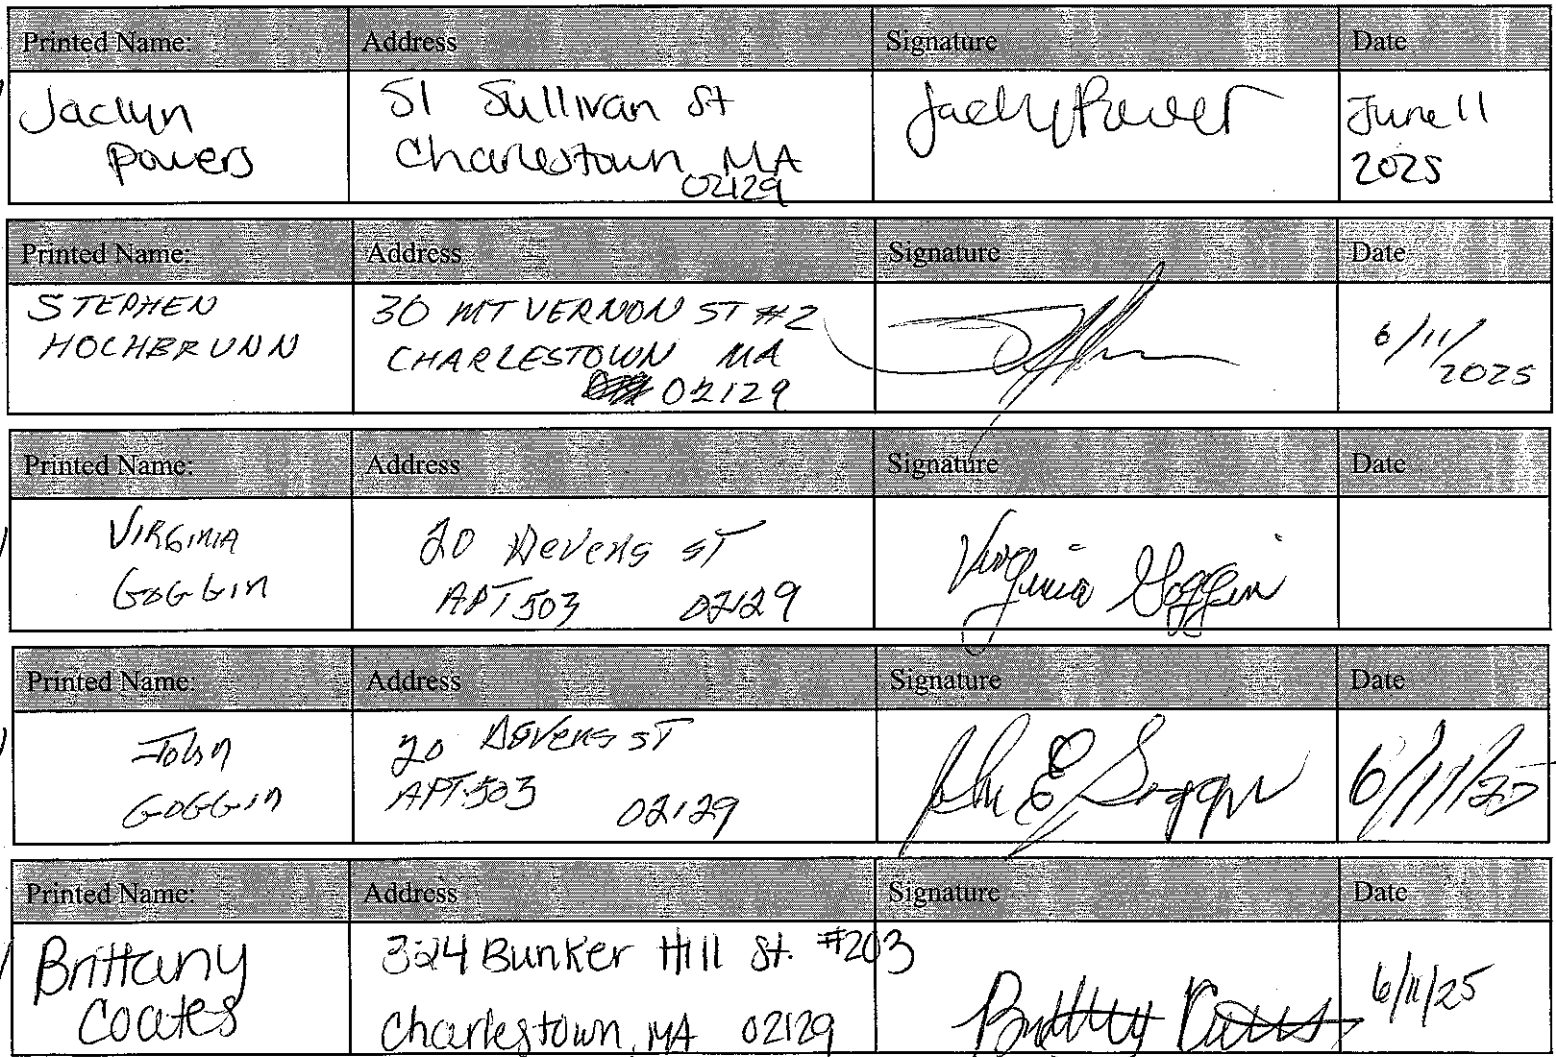 Printed Name: Address Signature Date
Jaclyn Powers
51 Sullivan St
Charlestown, MA
02129
Jaclyn Powers
June 11
2025
Printed Name: Address Signature Date
STEPHEN
HOCHBRUNN
30 MT VERNON ST #2
CHARLESTOWN MA
02129
6/11/
2025
Printed Name: Address Signature Date
VIRGINIA
GOGGIN
20 Devens ST
APT 503 02129
Virginia Goggin
Printed Name: Address Signature Date
John
GOGGIN
20 Devens ST
APT. 503
02129
John E Goggin
6/11/25
Printed Name: Address Signature Date
Brittany
Coates
324 Bunker Hill St. #203
Charlestown, MA 02129
Brittany Coates
6/11/25